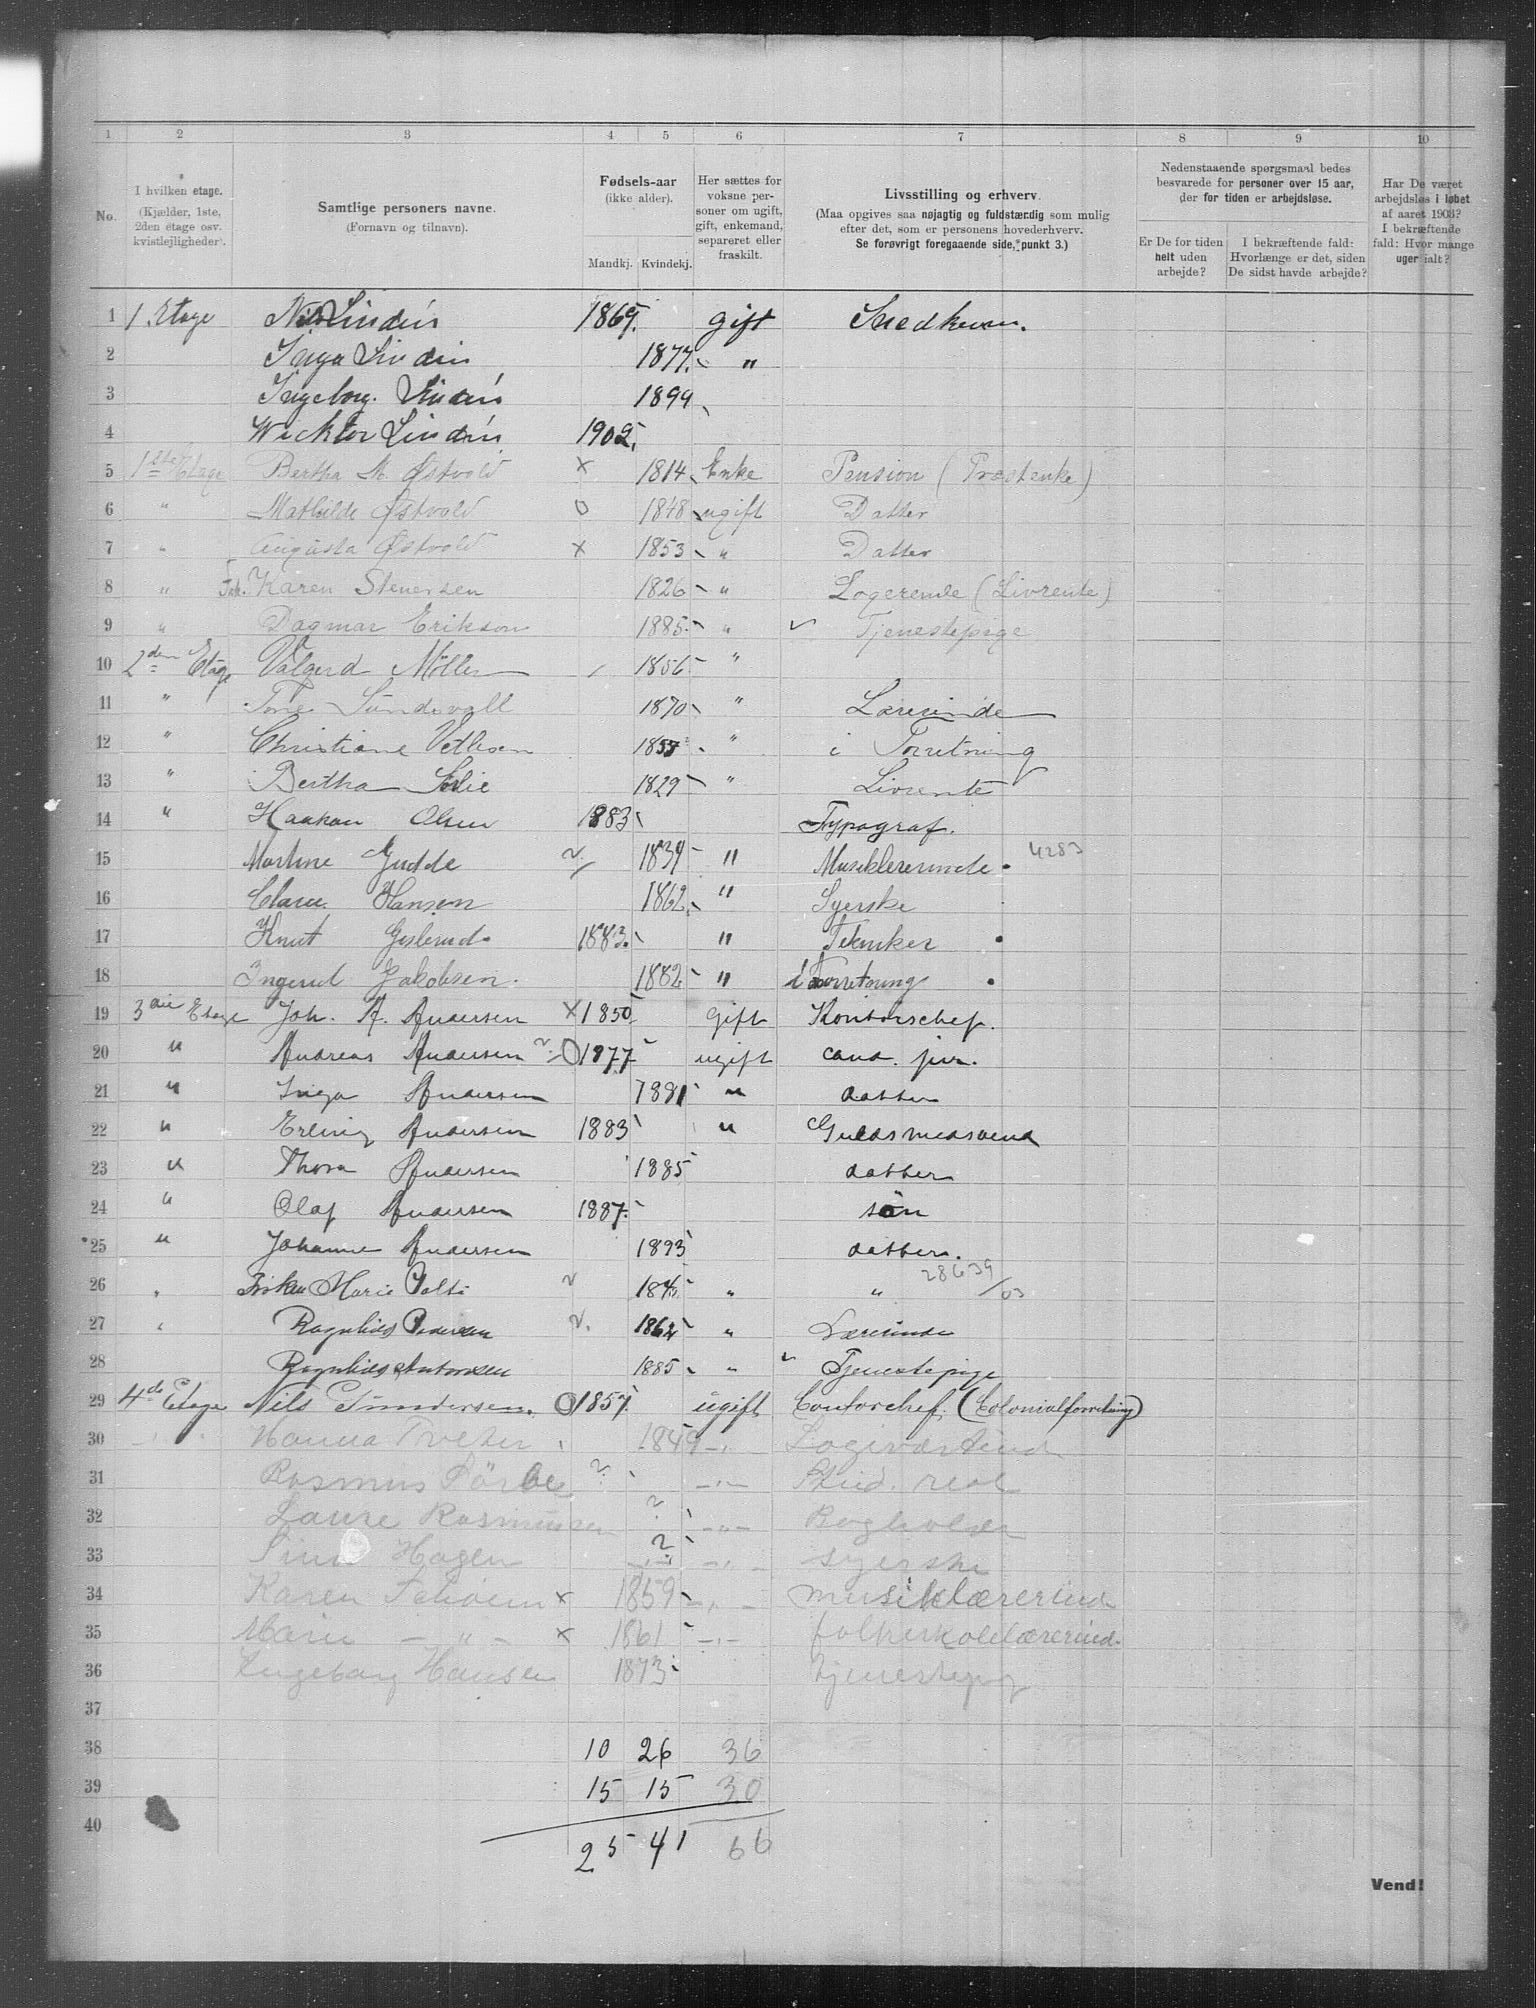 1 2 3 4 5 6 7 8 9 10
No.
I hvilken etage.
(Kjælder, 1ste,
2den etage osv.
kvistlejligheder).
Samtlige personers navne.
(Fornavn og tilnavn).
Fødsels-aar
(ikke alder).
Mandkj. Kvindekj.
Her sættes for
voksne per-
soner om ugift,
gift, enkemand,
separeret eller
fraskilt.
Livsstilling og erhverv.
(Maa opgives saa nøjagtig og fuldstændig som mulig
efter det, som er personens hovederhverv.
Se forøvrigt foregaaende side, punkt 3.)
Nedenstaaende spørgsmaal bedes
besvarede for personer over 15 aar,
der for tiden er arbejdsløse.
Er De for tiden
helt uden
arbejde?
I bekræftende fald:
Hvorlænge er det, siden
De sidst havde arbejde?
Har De været
arbejdsløs i løbet
af aaret 1903?
I bekræftende
fald: Hvor mange
uger ialt?
1 1. Etage Nils Lindén 1869. gift Snedkersv.
2 Inga Lindén 1877. "
3 Ingeborg. Lindén 1899
4 Wicktor Lindén 1902.
5 1ste Etage Bertha M. Østvold x 1814 Enke Pension (Prestenke)
6 " Mathilde Østvold o 1848 ugift Datter
7 " Augusta Østvold x 1853 " Datter
8 " Frk. Karen Stenersen 1826 " Logerende (Livrente)
9 " Dagmar Erikson 1885 " Tjenestepige
10 2den Etage Valgerd Møller 1856 "
11 " Tone Sundsvall 1870 " Lærerinde
12 " Christiane Vetlesen 1855 " i Forretning
13 " Bertha Solie 1829 " Livrente
14 " Haakon Olsen 1883 Typograf.
15 Martine Gudde v 1839 " Musiklererinde 4283
16 Clara Hansen 1862 " Syerske
17 Knut Gislerud 1883. " Tekniker
18 Ingerid Jakobsen. 1882 " i Forretning
19 3die Etage Joh. A. Andersen x 1850 gift Kontorschef.
20 " Andreas Andersen o 1877 ugift cand. jur.
21 " Inga Andersen 1881 " datter
22 " Erling Andersen 1883 " Guldsmedsvend
23 " Thora Andersen 1885 datter
24 " Olaf Andersen 1887. søn
25 " Johanne Andersen 1893 datter.
26 " Marie v 184 " " 28639/03
27 " Ragnhild Pedersen v. 1862 " Lærerinde
28 Ragnhild Antonsen 1885 " Tjenestepige
29 4de Etage Nils Gundersen. o 1857. ugift Contorchef. (Colonialforretning)
30 Hanna Tveter 1849 " Logiværtind
31 Rasmus ? " Stud. real
32 Laura Rasmussen ? " Bogholder
33 Hagen ? " syerske
34 Karen x 1859 " musiklærerind
35 Marie - " - x 1861 " folkeskolelærerind.
36 Ingeborg Hansen 1873 tjenestepig
37
38 10 26 36
39 15 15 30
40 25 41 66
Vend!